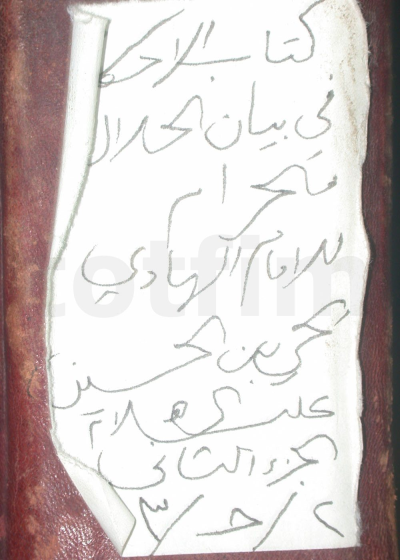 كتاب الاحكا
في بيان الحلال
والحرام
للامام الهادي
يحيى بن الحسين
عليه السلام
الجزء الثاني
٢ / ح / ٣